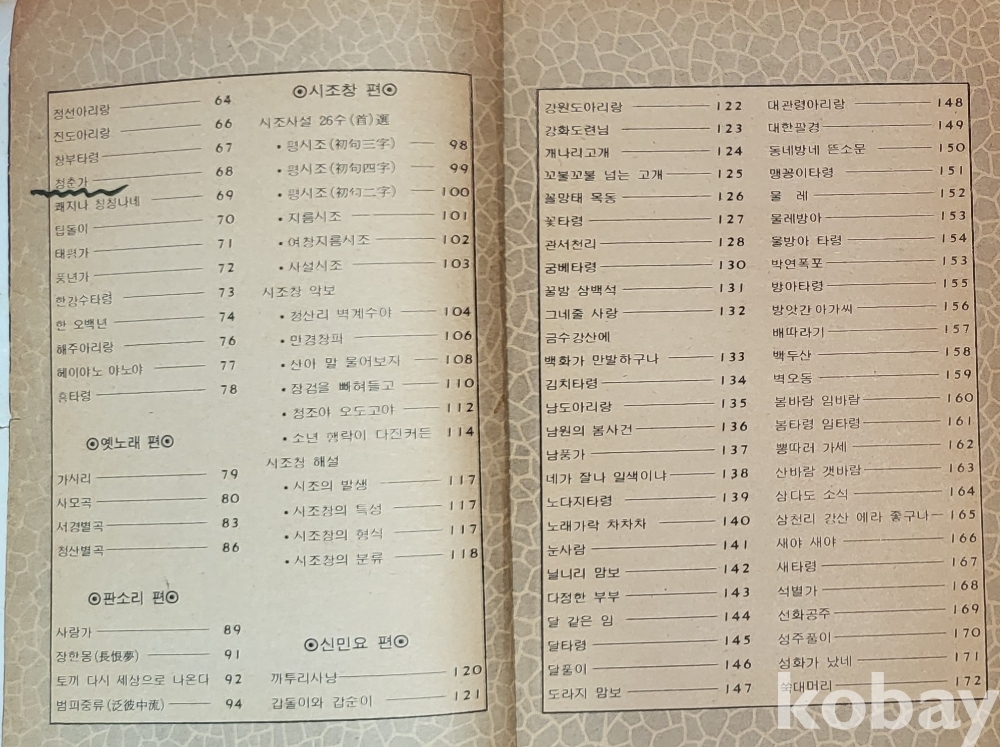 정선아리랑 64
진도아리랑 66
창부타령 67
청춘가 68
쾌지나 칭칭나네 69
팁돌이 70
태평가 71
풍년가 72
한강수타령 73
한 오백년 74
해주아리랑 76
헤이야노 야노야 77
흥타령 78
◉옛노래 편◉
가시리 79
사모곡 80
서경별곡 83
청산별곡 86
◉판소리 편◉
사랑가 89
장한몽(長恨夢) 91
토끼 다시 세상으로 나온다 92
범피중류(泛彼中流) 94
◉시조창 편◉
시조사설 26수(首)選
• 평시조(初句三字) 98
• 평시조(初句四字) 99
• 평시조(初句二字) 100
• 지름시조 101
• 여창지름시조 102
• 사설시조 103
시조창 악보
• 청산리 벽계수야 104
• 만경창파 106
• 산아 말 물어보자 108
• 장검을 빼혀들고 110
• 청조야 오도고야 112
• 소년 행락이 다진커든 114
시조창 해설
• 시조의 발생 117
• 시조창의 특성 117
• 시조창의 형식 117
• 시조창의 분류 118
◉신민요 편◉
까투리사냥 120
갑돌이와 갑순이 121
강원도아리랑 122
강화도련님 123
개나리고개 124
꼬불꼬불 넘는 고개 125
꼴망태 목동 126
꽃타령 127
관서천리 128
궁베타령 130
꿀밤 삼백석 131
그네줄 사랑 132
금수강산에
백화가 만발하구나 133
김치타령 134
남도아리랑 135
남원의 봄사건 136
남풍가 137
네가 잘나 일색이냐 138
노다지타령 139
노래가락 차차차 140
눈사람 141
닐니리 맘보 142
다정한 부부 143
달 같은 임 144
달타령 145
달풀이 146
도라지 맘보 147
대관령아리랑 148
대한팔경 149
동네방네 뜬소문 150
맹꽁이타령 151
물 레 152
물레방아 153
물방아 타령 154
박연폭포 153
방아타령 155
방앗간 아가씨 156
배따라기 157
백두산 158
벽오동 159
봄바람 임바람 160
봄타령 임타령 161
뽕따러 가세 162
산바람 갯바람 163
삼다도 소식 164
삼천리 강산 에라 좋구나 165
새야 새야 166
새타령 167
석별가 168
선화공주 169
성주풀이 170
성화가 났네 171
쑥대머리 172
kobay